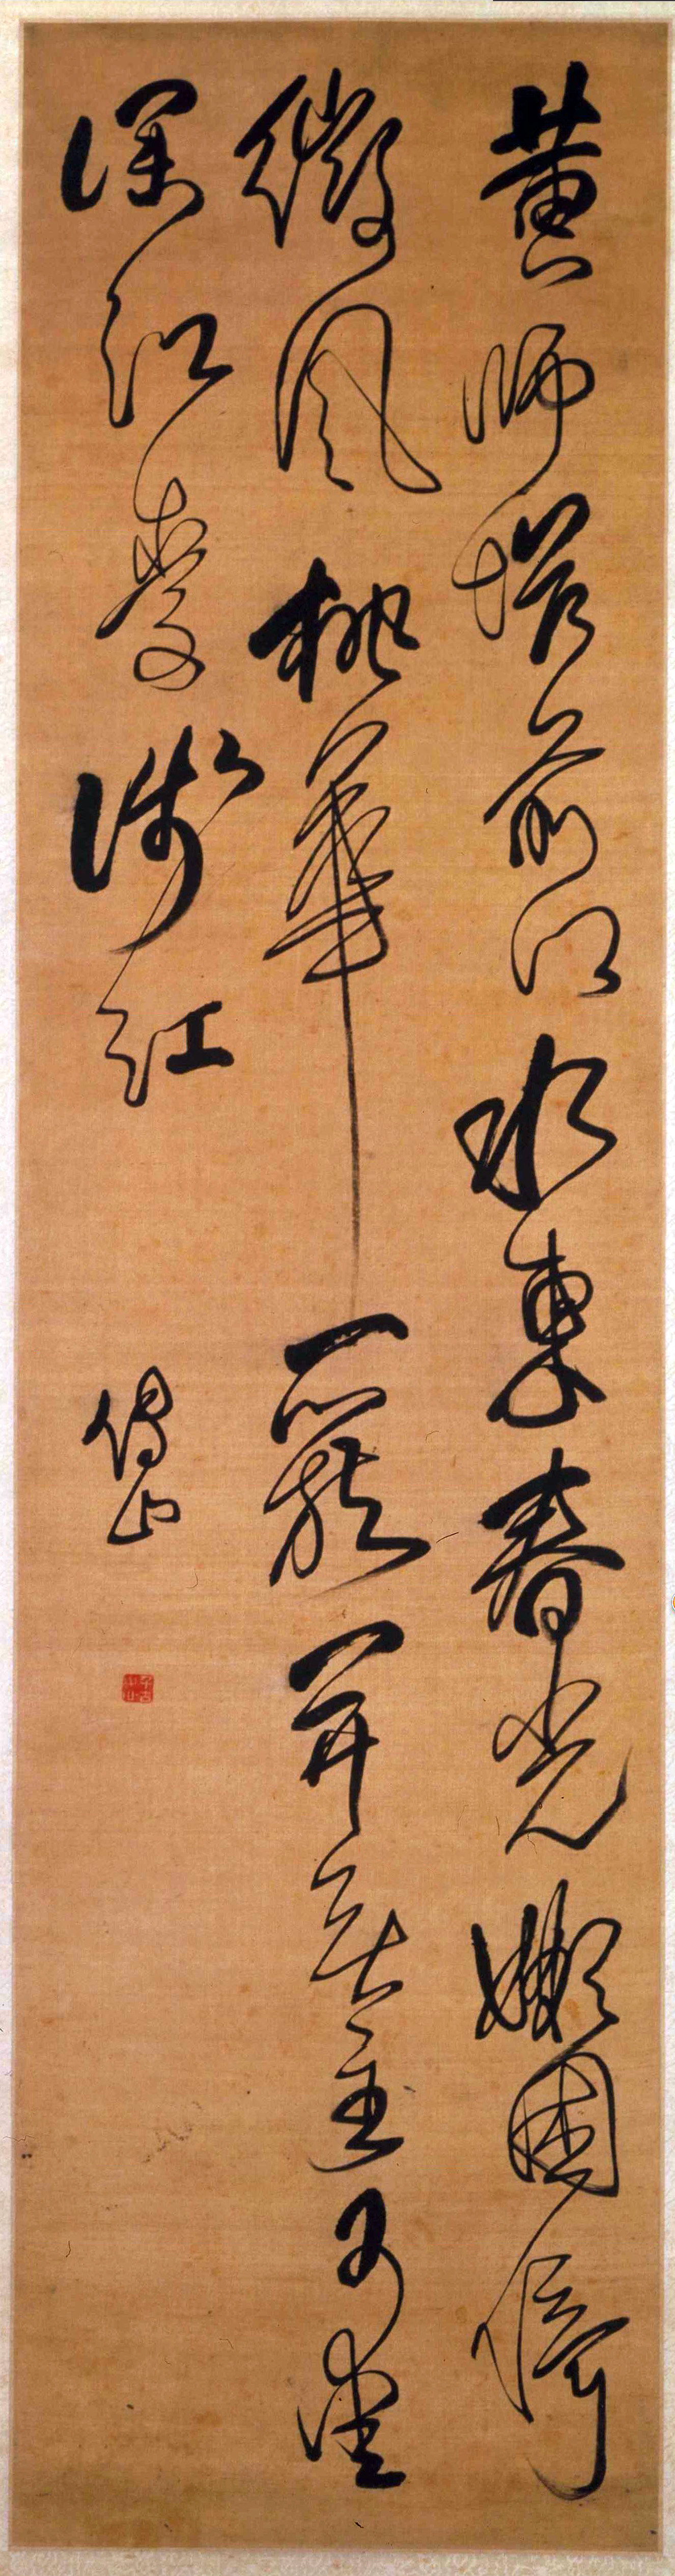 黃師塔前江水東春光嬾困倚
微風桃華一簇開無主可愛
深紅愛淺紅
傅山